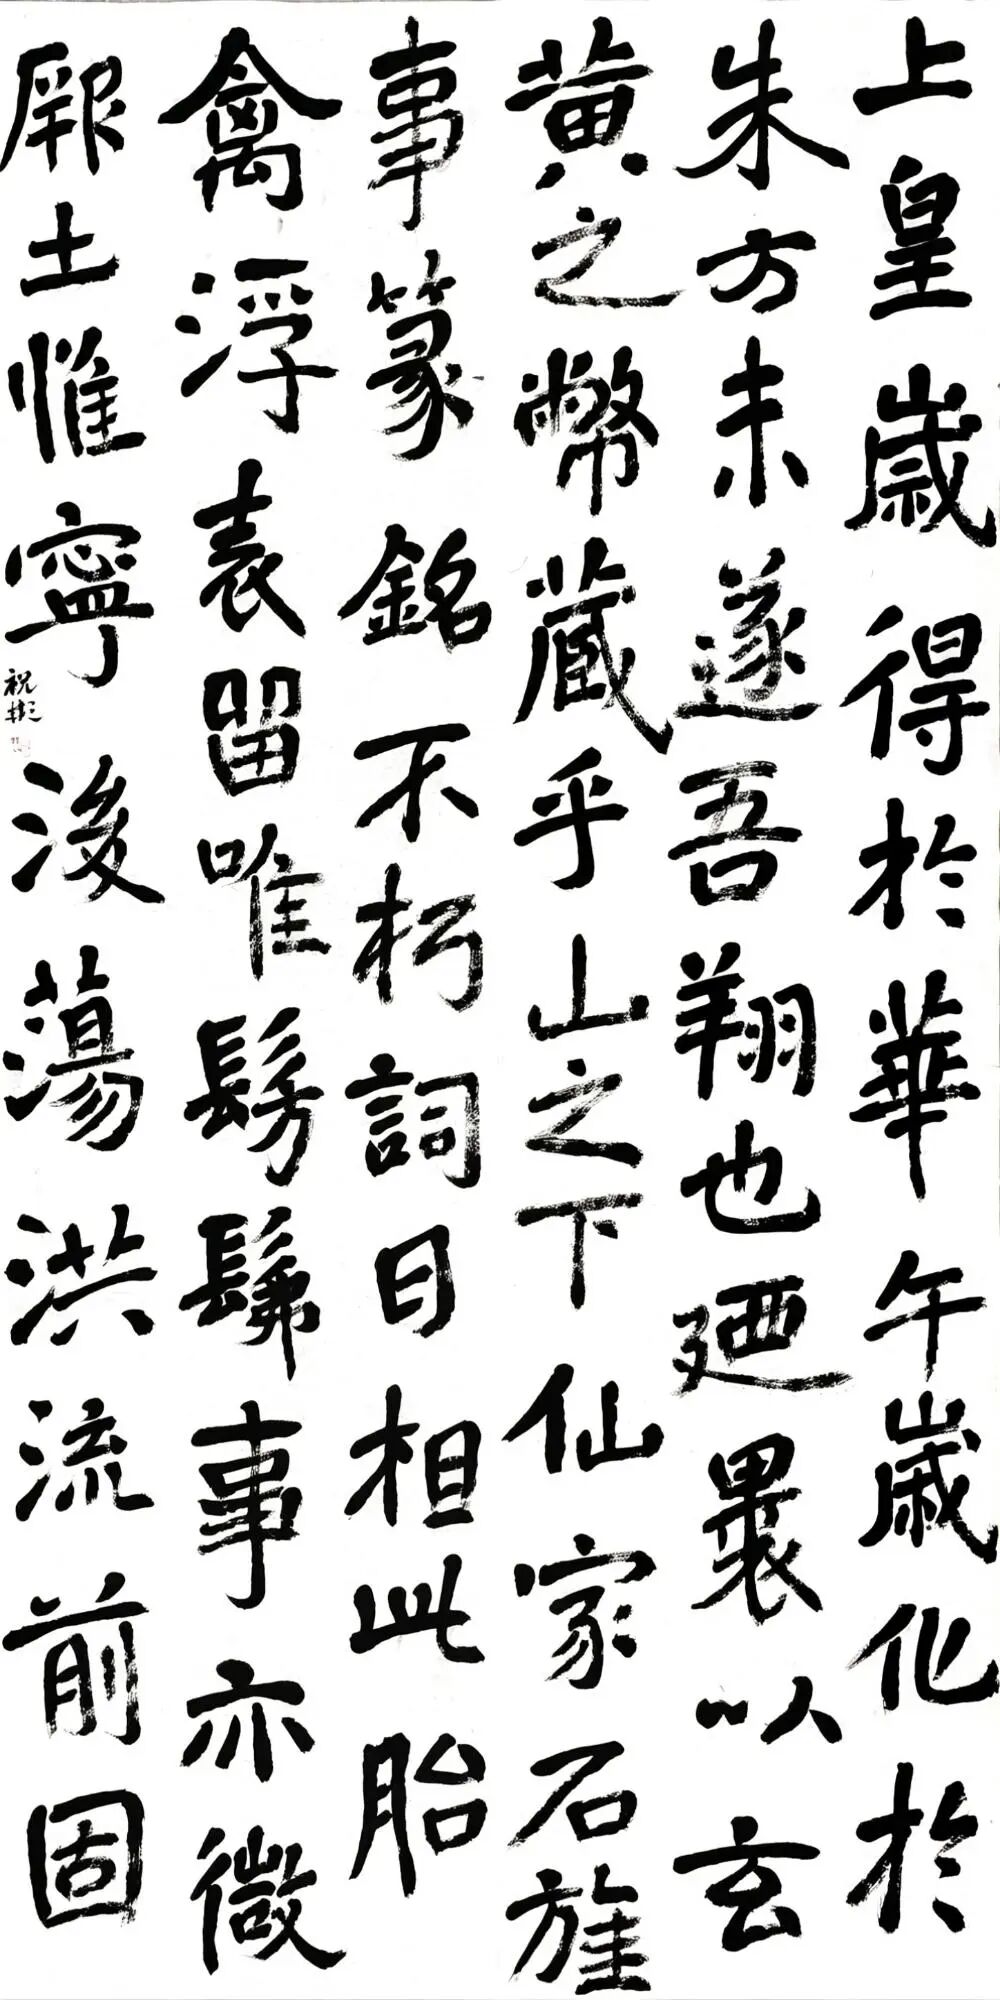 上皇歲得於華午歲化於
朱方未遂吾翔也廼裹以玄
黄之幣藏乎山之下仙家石旌
事篆銘不朽詞曰相此胎
禽浮表留唯髣髴事亦微
厥土惟寧後蕩洪流前固
祝彬